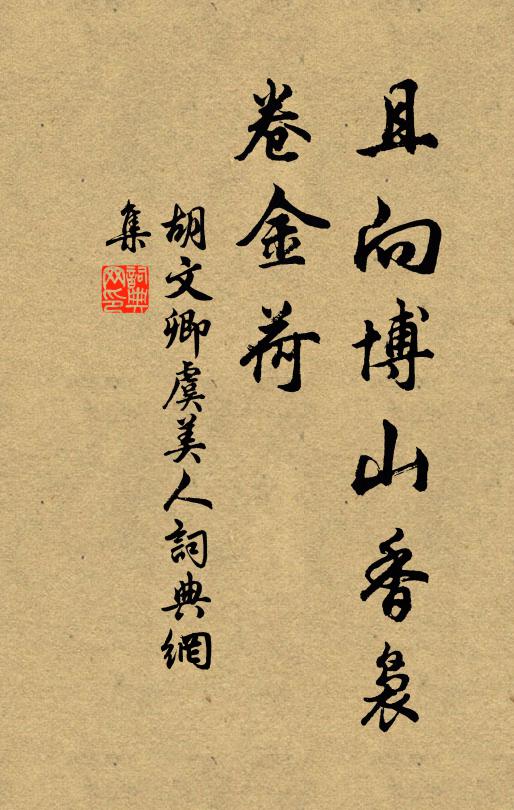 且向博山香裊
卷金荷
胡文卿虞美人詞典網
集
詞典
网印